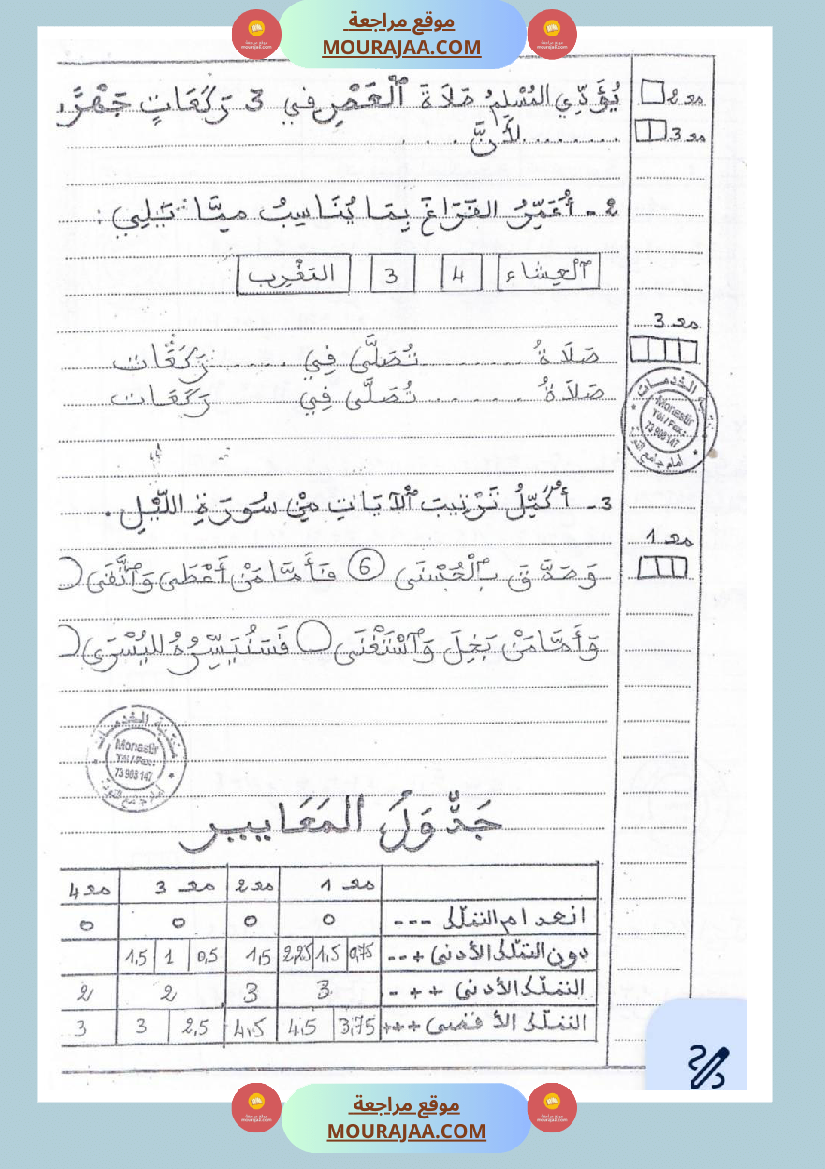 موقع مراجعة
MOURAJAA.COM
يُؤَدِّي المُسْلِمُ صَلَاةَ ٱلْعَصْرِ فِي 3 رَكَعَاتٍ جَهْرًا.
مع 2
........لِأَنَّ . . .
مع 3
2 - أُعَمِّرُ الفَرَاغَ بِمَا يُنَاسِبُ مِمَّا يَلِي :
ٱلْعِشَاء
4
3
المَغْرِب
مع 3
صَلَاةُ ........ تُصَلَّى فِي ...... رَكَعَات
صَلَاةُ ........ تُصَلَّى فِي رَكَعَات
3 - أُكَمِّلُ تَرْتِيبَ ٱلْآيَاتِ مِنْ سُورَةِ اللَّيْلِ .
مع 1
وَصَدَّقَ بِٱلْحُسْنَى 6 فَأَمَّا مَنْ أَعْطَى وَٱتَّقَى
وَأَمَّا مَنْ بَخِلَ وَٱسْتَغْنَى فَسَنُيَسِّرُهُ لِلْيُسْرَى
Monastir
Tél / Fax:
73 908 147
أمام جامع التوبة
Monastir
Tél / Fax:
73 908 147
جَدْوَلُ المَعَايِير
مع 1 مع 2 مع 3 مع 4
انعدام التملّك --- 0 0 0 0
دون التملّك الأدنى +-- 0,75 1,5 2,25 1,5 0,5 1 1,5
التملّك الأدنى ++- 3 3 2 2
التملّك الأقصى +++ 3,75 4,5 4,5 2,5 3 3
موقع مراجعة
MOURAJAA.COM